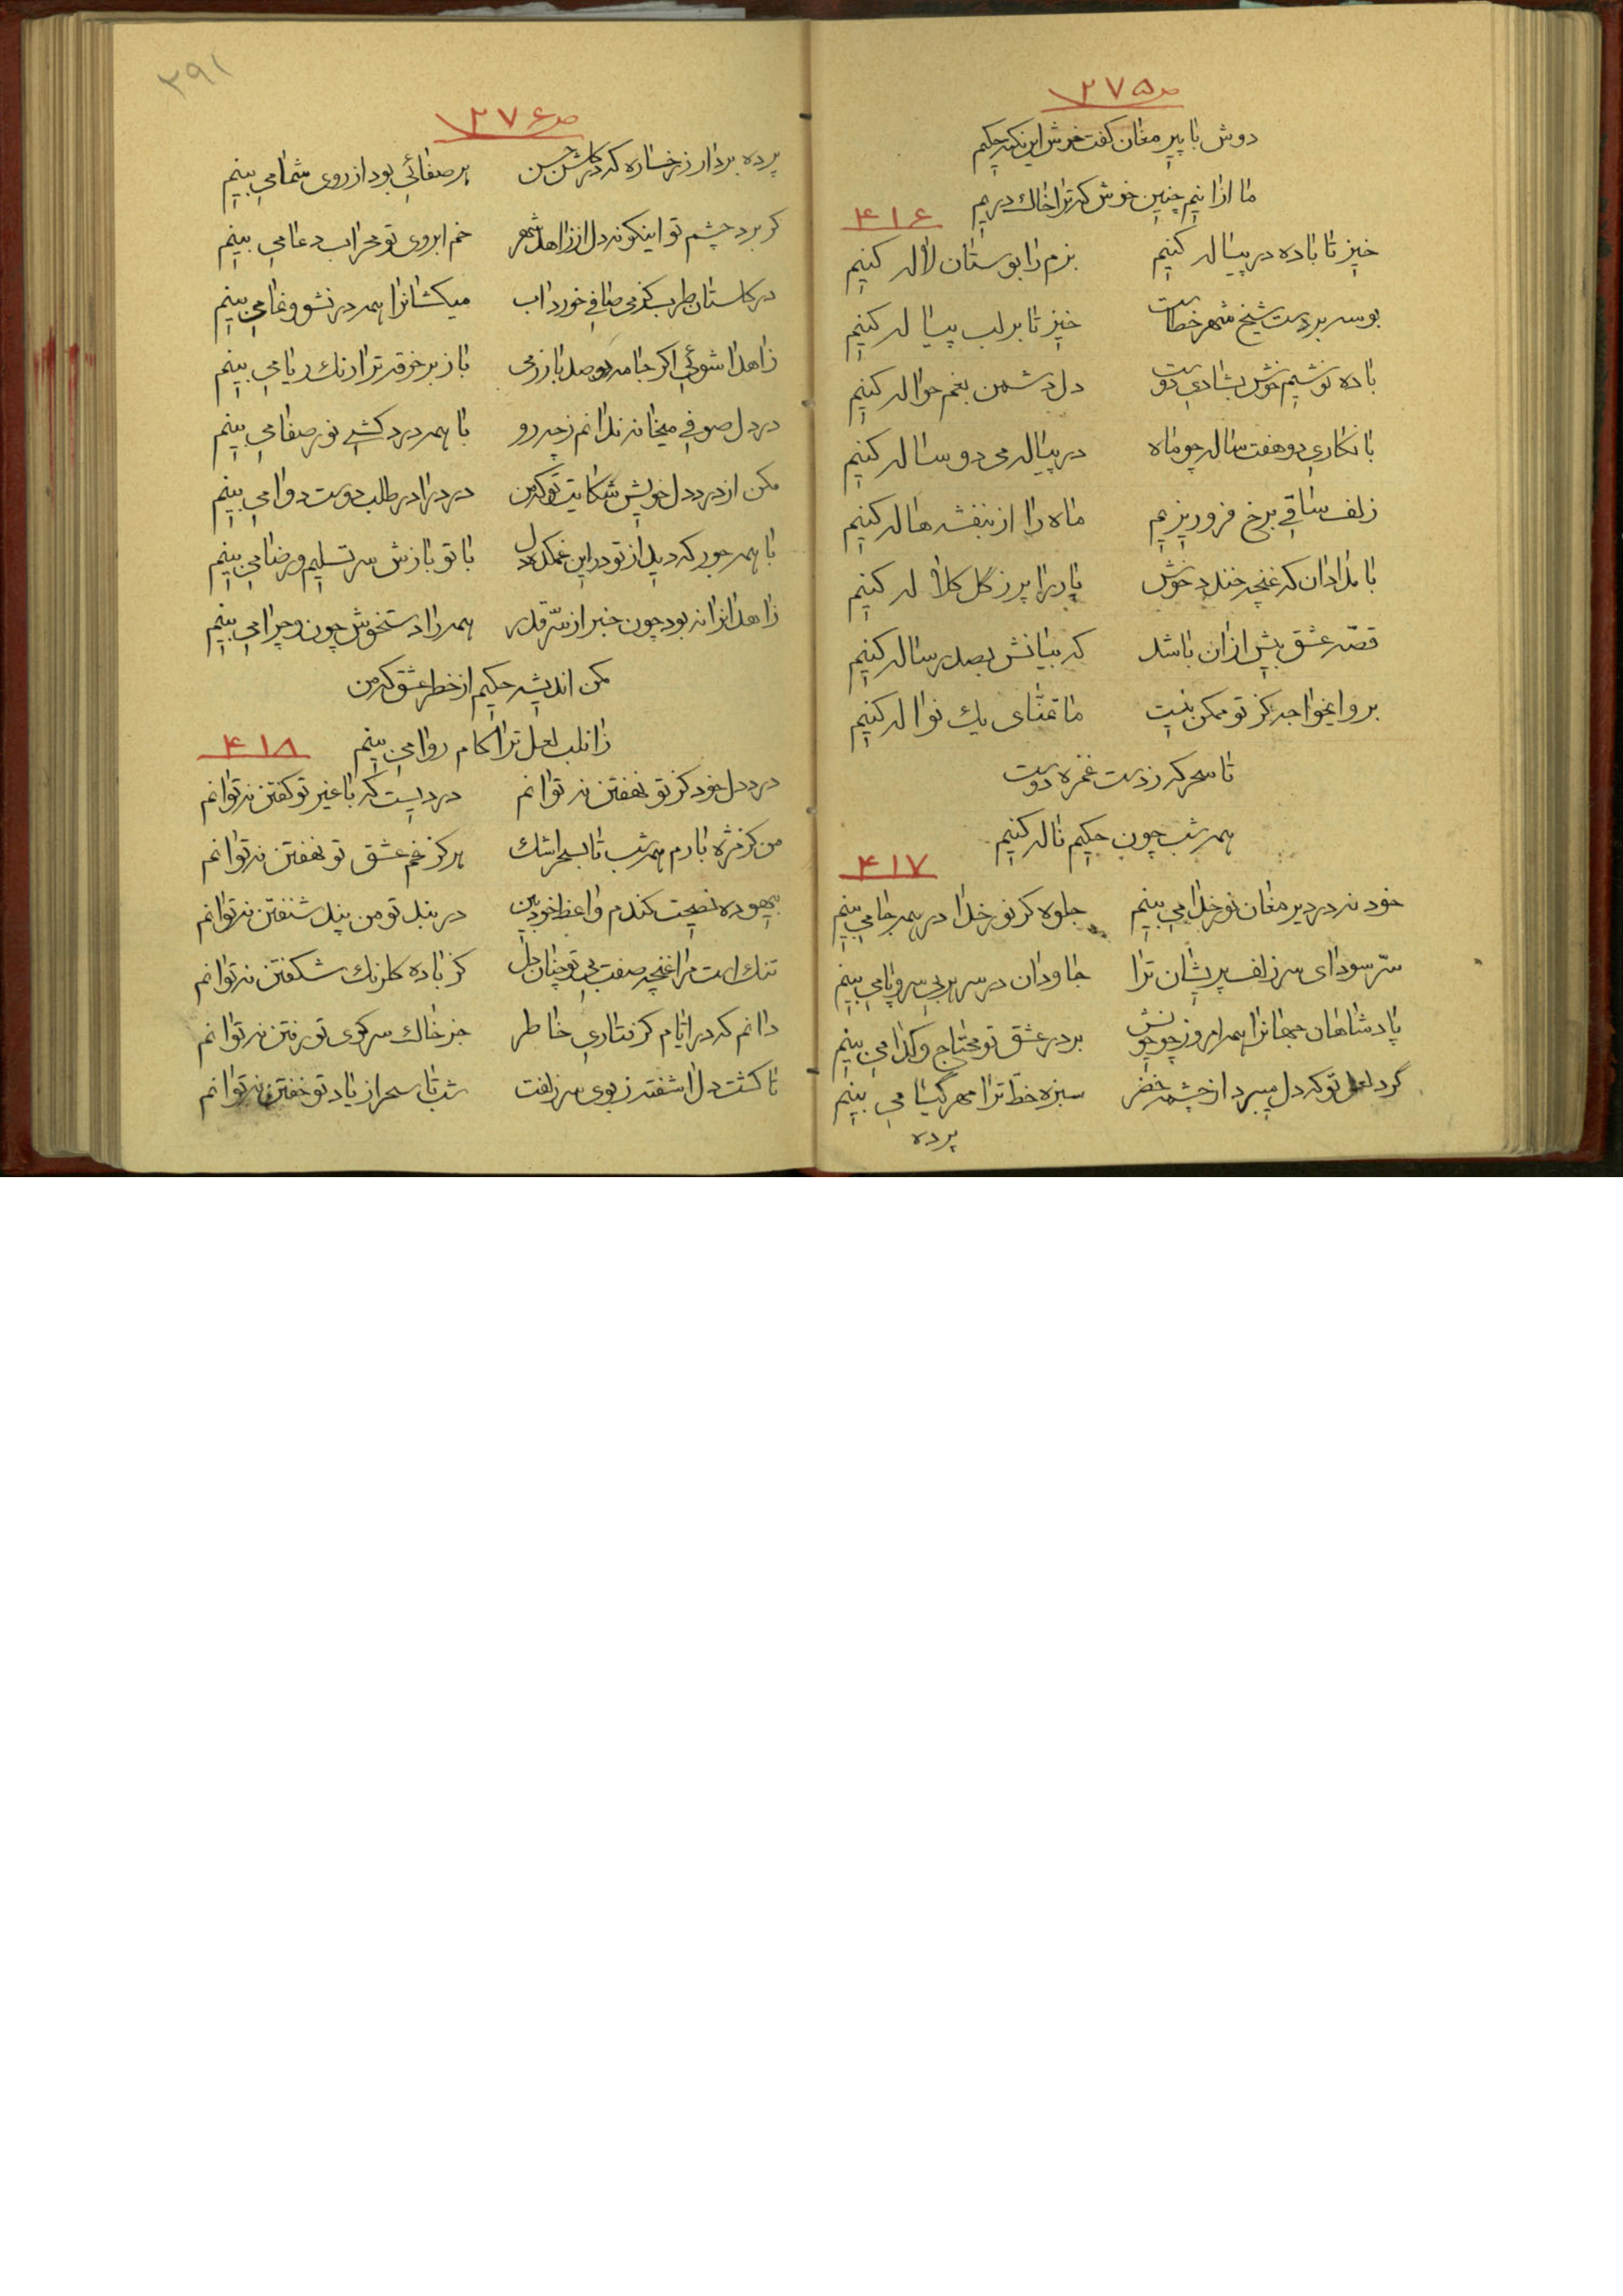 ص ٢٧٥
دوش با پیر مغان گفت خوش این نکته حکیم
ما ازانیم چنین خوش که ترا خاک دریم
۴۱۶
خیز تا باده در پیاله کنیم بزم را بوستان لاله کنیم
بوسه بر دست شیخ شهر خطاست خیز تا بر لب پیاله کنیم
باده نوشیم خوش بشادی دوست دل دشمن بغم حواله کنیم
با نگاری دو هفت ساله چو ماه در پیاله می دو ساله کنیم
زلف ساقی برخ فرو ریزیم ماه را از بنفشه هاله کنیم
بامدادان که غنچه خندد خوش یار را پر ز گل کلاله کنیم
قصّه عشق بیش ازان باشد که بیانش بصد رساله کنیم
برو ایخواجه کز تو ممکن نیست ما تمنّای یک نواله کنیم
تا سحر که ز دست غمزه دوست
همه شب چون حکیم ناله کنیم
۴۱۷
خود نه در دیر مغان نور خدا می بینم جلوه گر نور خدا در همه جا می بینم
سرّ سودای سر زلف پریشان ترا جاودان در سر هر بی سر و پا می بینم
پادشاهان جهانرا همه امروز چو خویش بر در عشق تو محتاج و گدا می بینم
گرد لعل تو که دل میبرد از چشمه خضر سبزه خطّ ترا مهر گیا می بینم
پرده
٢٩١
ص ٢٧۶
پرده بردار ز رخساره که در گلشن حسن هر صفائی بود از روی شما می بینم
گر برد چشم تو اینگونه دل از زاهد شهر خم ابروی تو محراب دعا می بینم
در گلستان طرب کز می صافی خورد آب میکشانرا همه در نشو و نما می بینم
زاهدا شوئی اگر جامه دو صد بار ز می باز بر خرقه ترا رنگ ریا می بینم
در دل صوفی میخانه ندانم ز چه رو با همه درد کشی نور صفا می بینم
مکن از درد دل خویش شکایت تو که من درد را در طلب دوست دوا می بینم
با همه جور که دید از تو در این غمکده دل با تو بازش سر تسلیم و رضا می بینم
زاهدانرا نه بود چون خبر از سرّ قدر همه را دستخوش چون و چرا می بینم
مکن اندیشه حکیم از خطر عشق که من
زانلب لعل ترا کام روا می بینم
۴۱۸
درد دل خود کز تو نهفتن نه توانم دردیست که با غیر تو گفتن نه توانم
من کز مژه بارم همه شب تا بسحر اشک هرگز غم عشق تو نهفتن نه توانم
بیهوده نصیحت کندم واعظ خودبین در بند تو من پند شنفتن نه توانم
تنک است مرا غنچه صفت بی تو چنان دل کز باده گلرنگ شکفتن نه توانم
دانم که در ایام گرفتاری خاطر جز خاک سر کوی تو رفتن نه توانم
تا گشت دل آشفته ز بوی سر زلفت شب تا سحر از یاد تو خفتن نه توانم